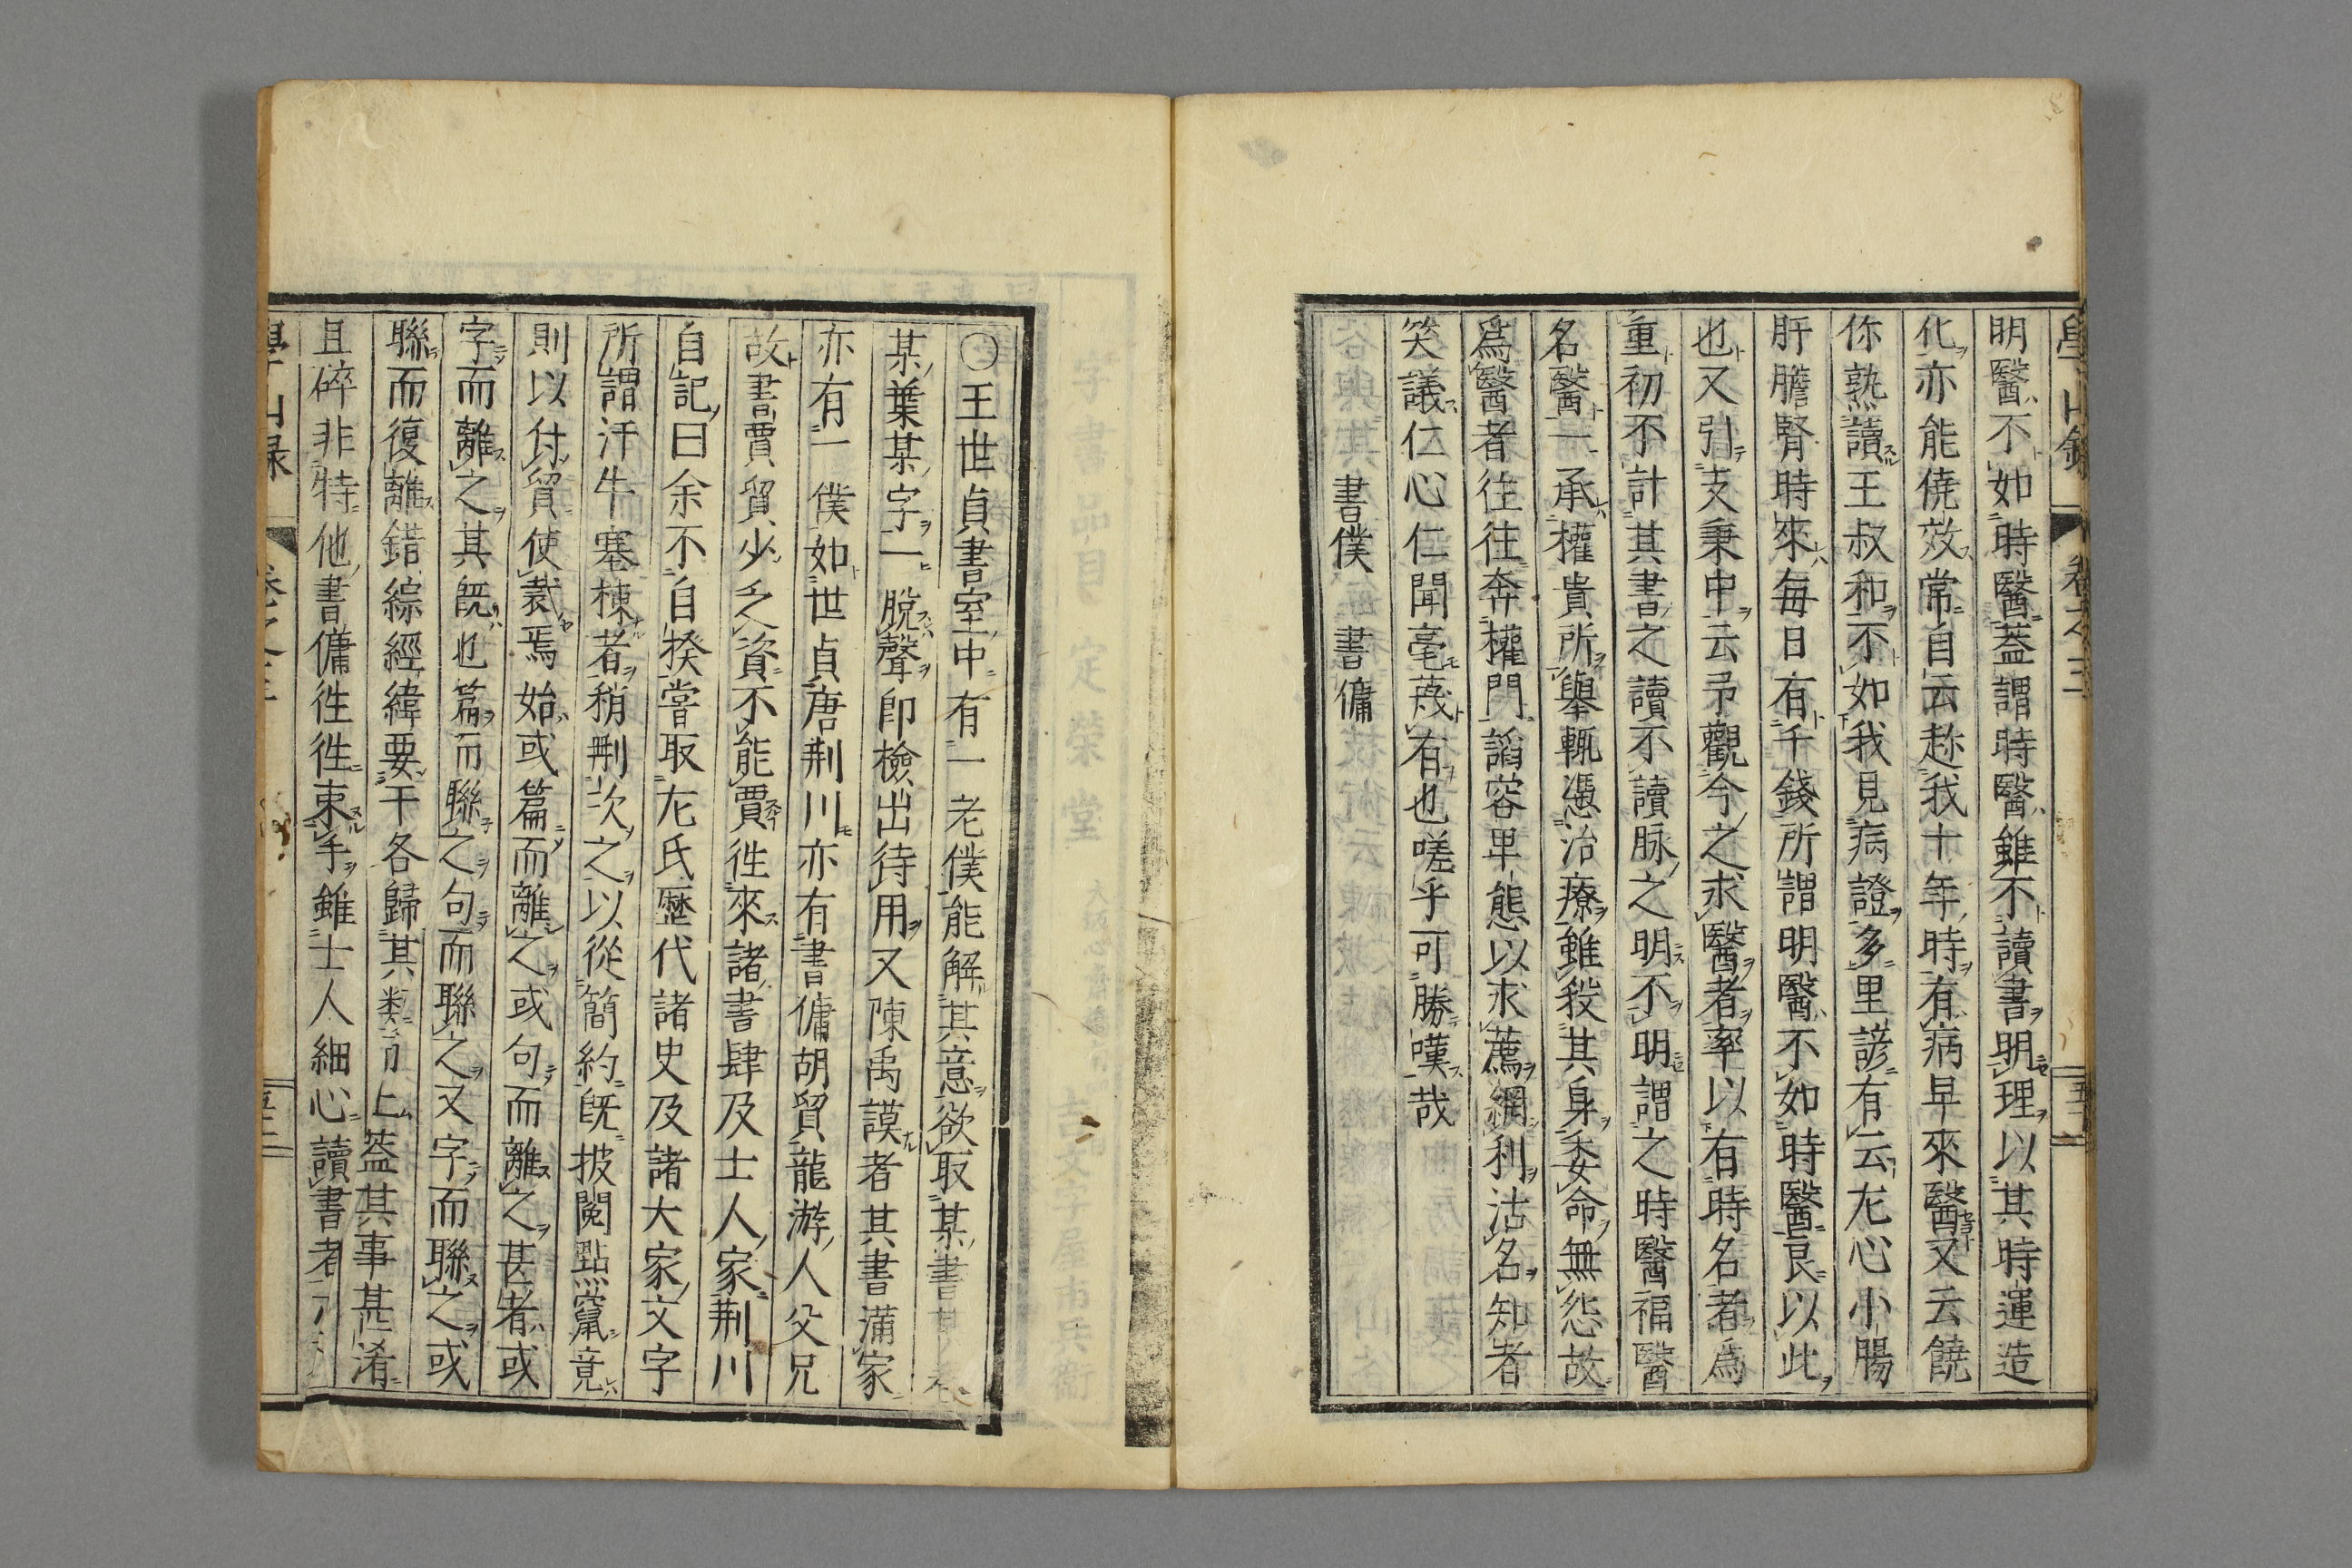 明醫不如時醫蓋謂時醫雖不讀書明理以其時運造
化亦能僥效常自云趂我十年時有病早來醫又云饒
你熟讀王叔和不如我見病證多里諺有云尨心小腸
肝膽腎時來每日有千錢所謂明醫不如時醫良以此
也又引支秉中云予觀今之求醫者率以有時名者爲
重初不計其書之讀不讀脉之明不明謂之時醫福醫
名醫一承權貴所舉輒憑治療雖殺其身委命無怨故
爲醫者往往奔權門謟容卑態以求薦網利沽名知者
笑議仁心仁聞毫蔑有也嗟乎可勝嘆哉
書僕 書傭
○王世貞書室中有一老僕能解其意欲取某書某卷
某葉某字一脫聲卽檢出待用又陳禹謨者其書滿家
亦有一僕如世貞唐荆川亦有書傭胡貿龍游人父兄
故書賈貿少乏資不能賈徃來諸書肆及士人家荆川
自記曰余不自揆嘗取左氏歷代諸史及諸大家文字
所謂汗牛塞棟者稍刪次之以從簡約旣披閱點竄竟
則以付貿使裁焉始或篇而離之或句而離之甚者或
字而離之其旣也篇而聯之句而聯之又字而聯之或
聯而復離錯綜經緯要于各歸其類而止蓋其事甚淆
且碎非特他書傭徃徃束手雖士人細心讀書者